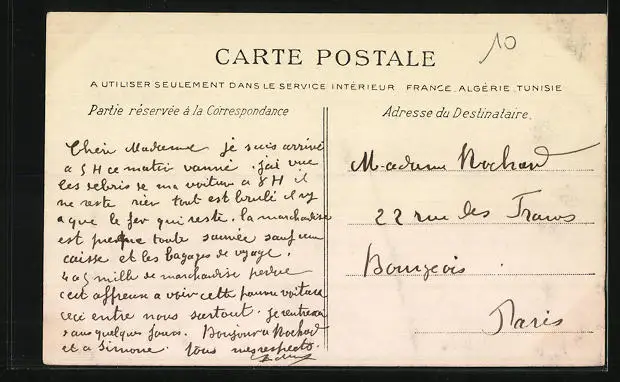 10
CARTE POSTALE
A UTILISER SEULEMENT DANS LE SERVICE INTÉRIEUR FRANCE, ALGÉRIE, TUNISIE
Partie réservée à la Correspondance
Adresse du Destinataire.
Chère Madame je suis arrivé
a 5H ce matin vanné. j'ai vue
les debris de ma voiture a 8H il
ne reste rien tout est brulé il ny
a que le fer qui reste. la marchandise
est presque toute sauvée sauf une
caisse et les bagages de voyage.
4 a 5 mille de marchandise perdue
cest affreux a voir cette pauvre voiture
ceci entre nous surtout. je rentrerai
dans quelques jours. Bonjour a Rochard
et a Simone. tous mes respects.
Madame Rochard
22 rue des Francs
Bourgeois.
Paris